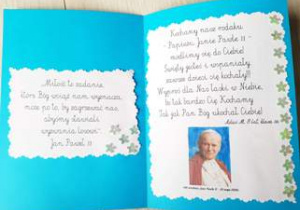 "Miłość to zadanie,
które Bóg wciąż nam wyznacza,
może po to, by zagrzewać nas,
abyśmy dawali
wyzwania losowi".
Jan Paweł II
Kochany nasz rodaku
- Papieżu Janie Pawle II -
modlimy się do Ciebie!
Święty jesteś i wspaniały
zawsze dzieci się kochały!
Wyproś dla Nas łaski w Niebie,
bo tak bardzo Cię Kochamy
Tak jak Pan Bóg ukochał Ciebie!
klasa